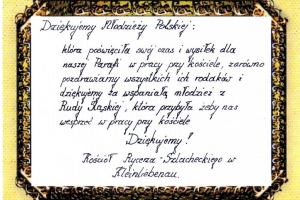 Dziękujemy Młodzieży Polskiej:
która poświęciła swój czas i wysiłek dla
naszej Parafi w pracy przy kościele, zarówno
pozdrawiamy wszystkich ich rodaków i
dziękujemy za wspaniałą młodzież z
Rudy Śląskiej, która przybyła żeby nas
wesprzeć w pracy przy kościele
Dziękujemy!
Kościół Rycersko-Szlacheckiego w
Kleinliebenau.